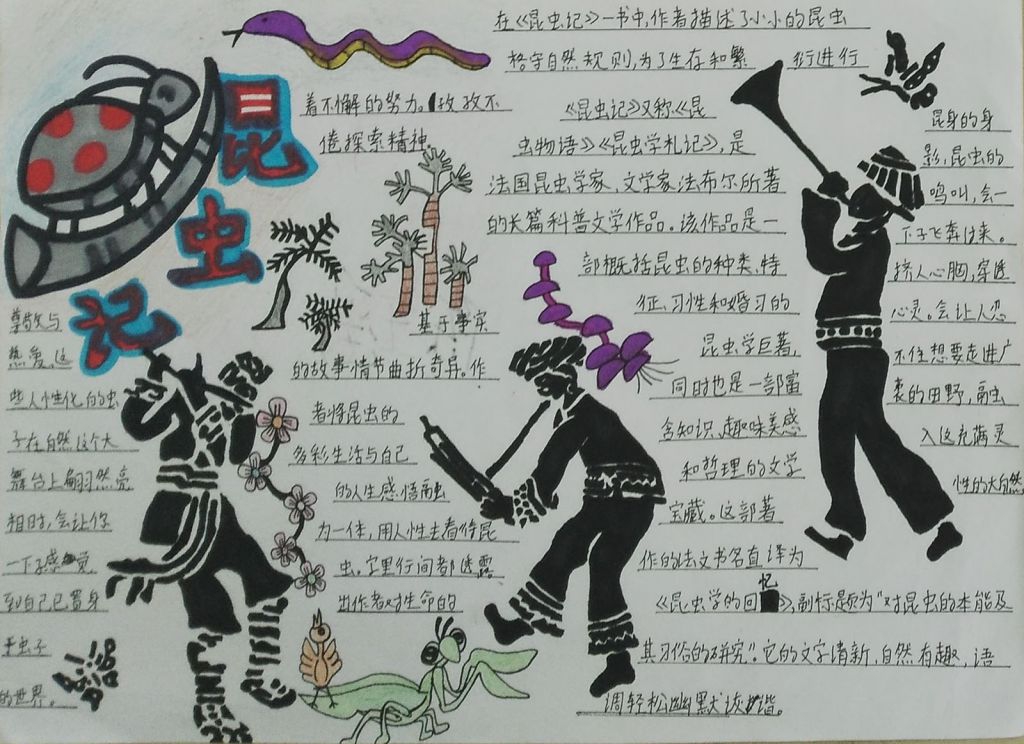 昆
虫
记
在《昆虫记》一书中,作者描述了小小的昆虫
格守自然规则,为了生存和繁 衍进行
着不懈的努力。孜孜不
倦探索精神
《昆虫记》又称《昆
虫物语》《昆虫学札记》,是
法国昆虫学家、文学家法布尔所著
的长篇科普文学作品。该作品是一
部概括昆虫的种类、特
征、习性和婚习的
昆虫学巨著,
同时也是一部富
含知识、趣味美感
和哲理的文学
宝藏。这部著
作的法文书名直译为
《昆虫学的回忆》,副标题为“对昆虫的本能及
其习俗的研究”。它的文字清新,自然有趣,语
调轻松幽默诙谐。
基于事实
的故事情节曲折奇异。作
者将昆虫的
多彩生活与自己
的人生感悟融
为一体,用人性去看待昆
虫。字里行间都透露
出作者对生命的
尊敬与
热爱。这
些人性化的虫
子在自然这个大
舞台上翩翩然亮
相时,会让你
一下子感觉
到自己已置身
于虫子
的世界。
昆身的身
影,昆虫的
鸣叫,会一
下子飞奔过来。
挤人心胸,穿透
心灵。会让人忍
不住想要走进广
袤的田野,融
入这充满灵
性的大自然